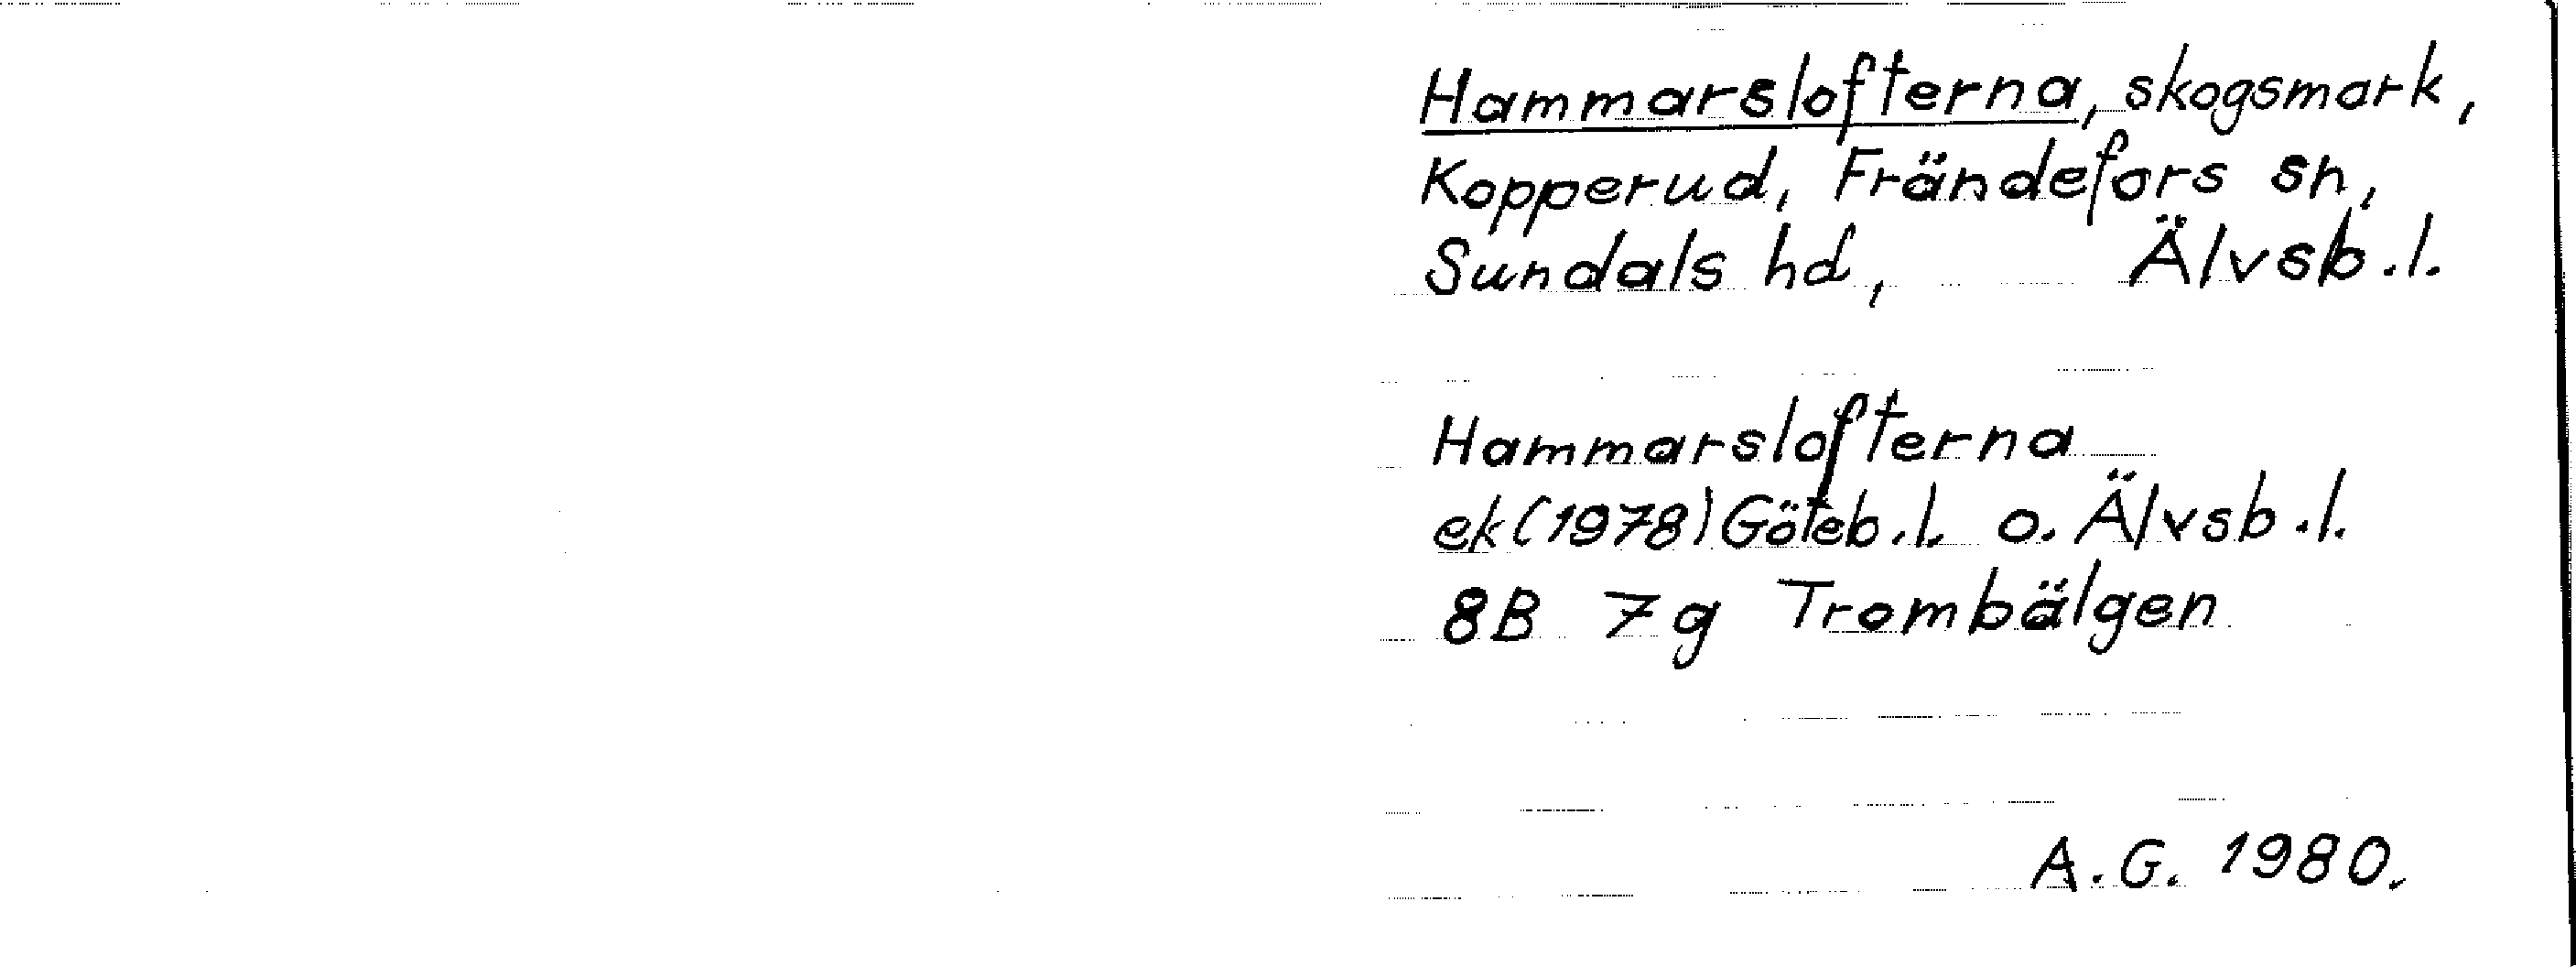 Hammarslofterna, skogsmark,
Kopperud, Frändefors sn,
Sundals hd, Älvsb.l.
Hammarslofterna
ek (1978) Göteb.l. o. Älvsb.l.
8B 7g Trombälgen
A.G. 1980.